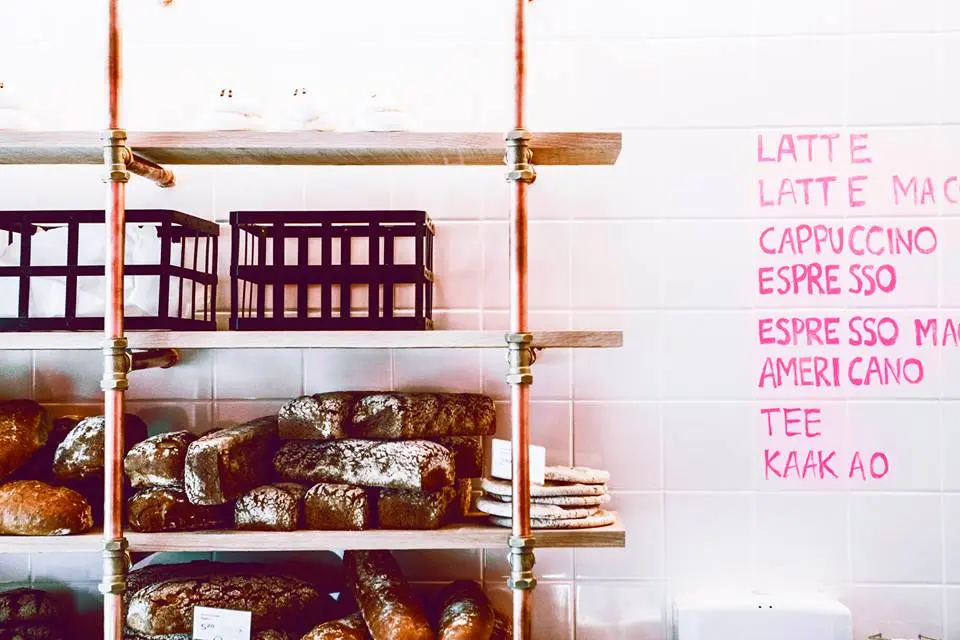 LATTE
LATTE MAC
CAPPUCCINO
ESPRESSO
ESPRESSO MAC
AMERICANO
TEE
KAAKAO